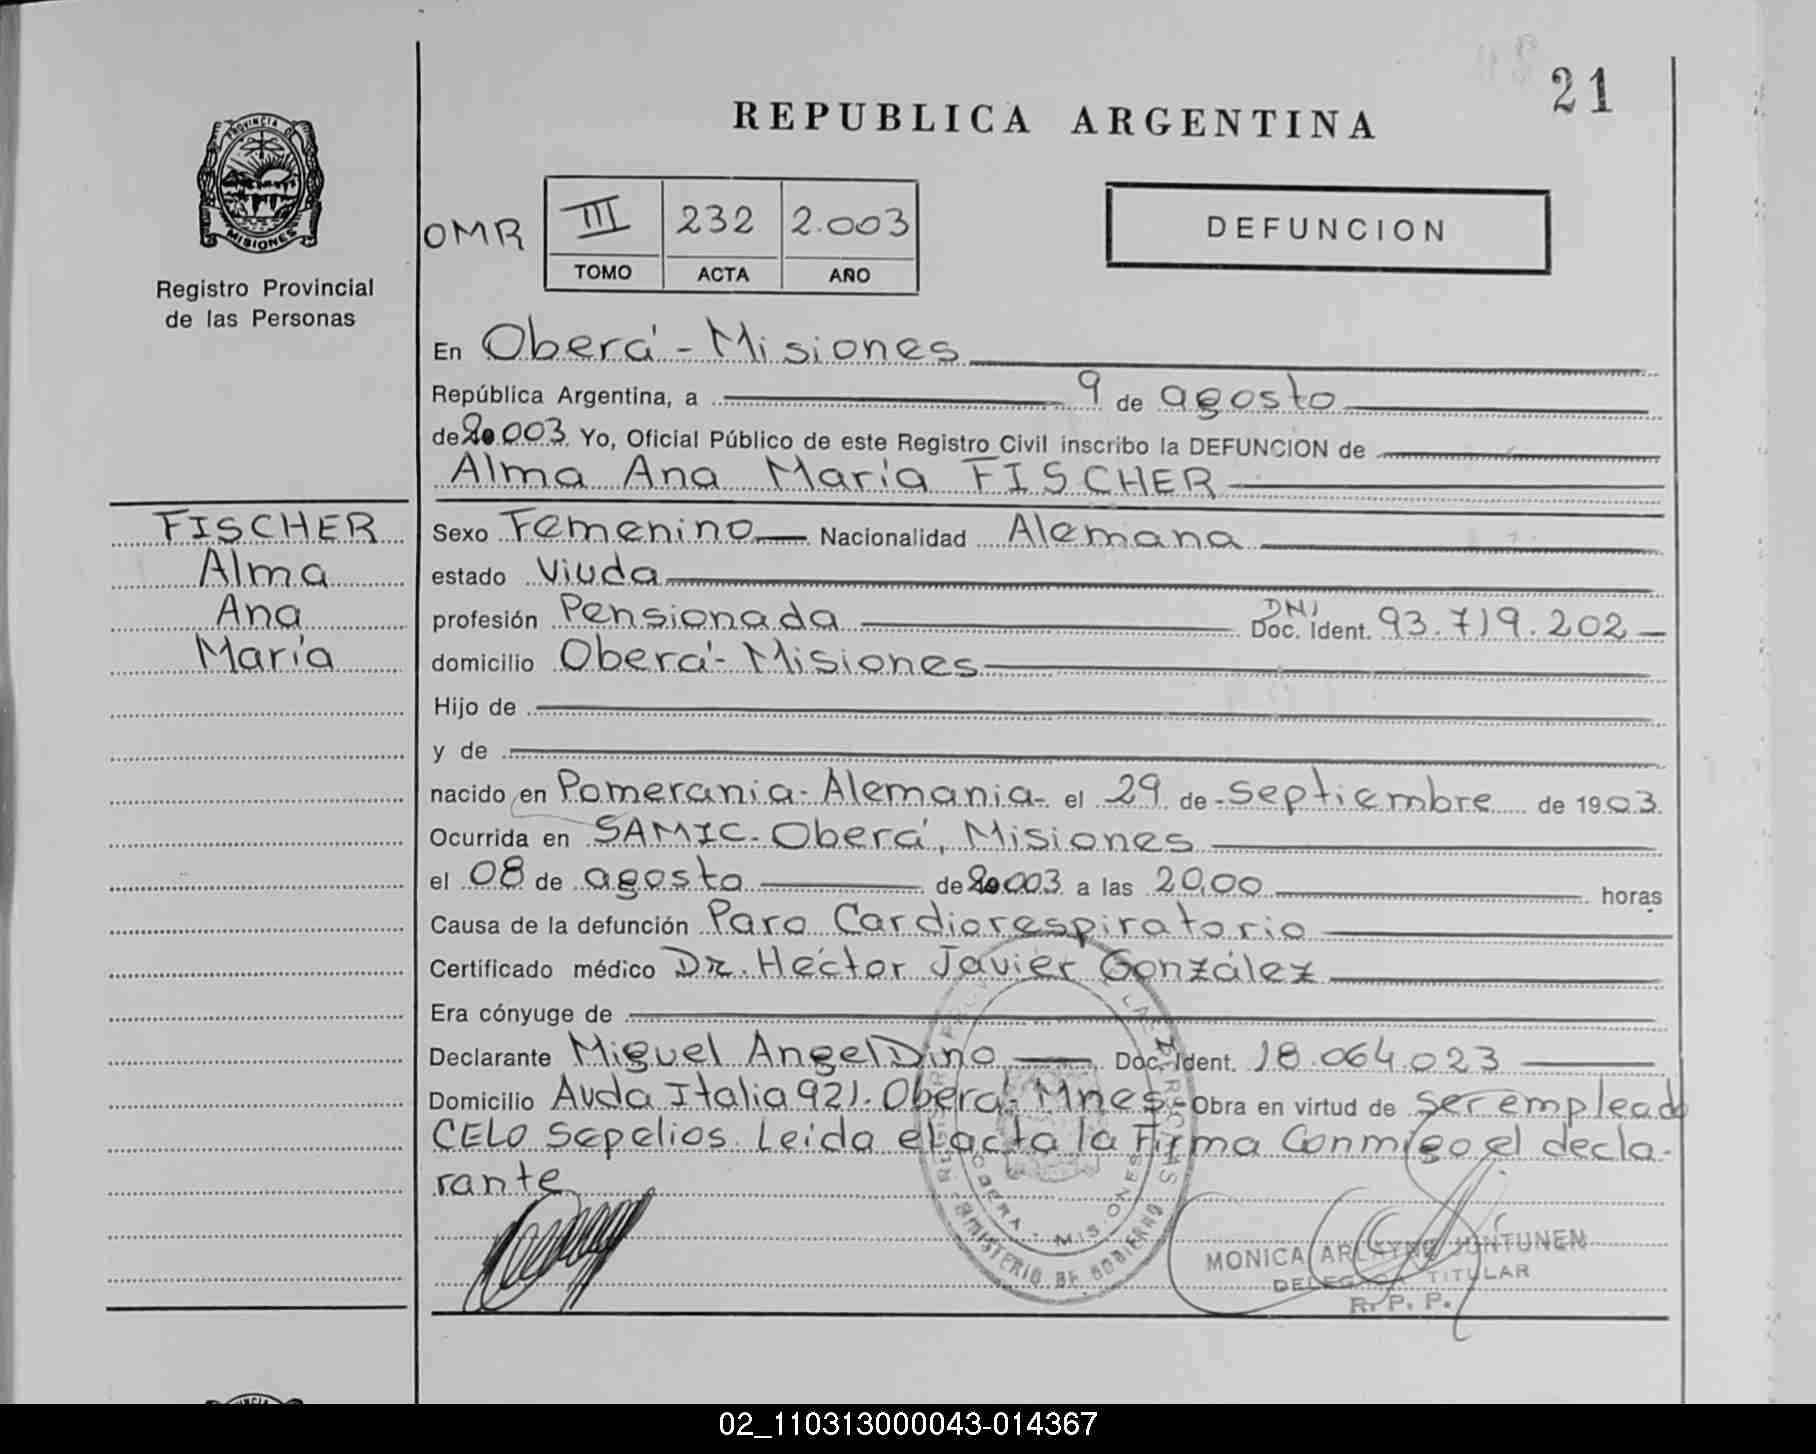 21
REPUBLICA ARGENTINA
PROVINCIA DE
MISIONES
Registro Provincial
de las Personas
OMR III 232 2.003
TOMO ACTA AÑO
DEFUNCION
En Oberá - Misiones
República Argentina, a 9 de agosto
de 2003 Yo, Oficial Público de este Registro Civil inscribo la DEFUNCION de
Alma Ana María FISCHER
FISCHER
Alma
Ana
María
Sexo Femenino Nacionalidad Alemana
estado Viuda
profesión Pensionada DNI Doc. Ident. 93.719.202
domicilio Oberá - Misiones
Hijo de
y de
nacido en Pomerania - Alemania - el 29 de - septiembre de 1903
Ocurrida en SAMIC - Oberá, Misiones
el 08 de agosto de 2003 a las 20,00 horas
Causa de la defunción Paro Cardiorespiratorio
Certificado médico Dr. Héctor Javier González
Era cónyuge de
Declarante Miguel Angel Dino Doc. Ident. 18.064.023
Domicilio Avda Italia 921. Oberá - Mnes - Obra en virtud de ser emplead
CELO Sepelios. Leida el acta la Firma Conmigo el decla-
rante
OBERA - MISIONES
MINISTERIO DE GOBIERNO
MONICA JUNTUNEN
DELEGADA TITULAR
R. P. P.
02_110313000043-014367